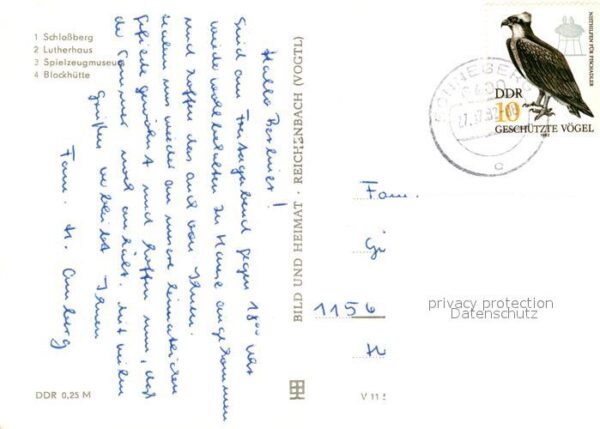 1 Schloßberg
2 Lutherhaus
3 Spielzeugmuseum
4 Blockhütte
Hallo Berliner!
Sind am Freitagabend gegen 18⁰⁰ Uhr
wieder wohlbehalten zu Hause angekommen
und hoffen das auch von Ihnen.
Haben uns wieder an unsere heimatlichen
Gefilde gewöhnt und hoffen nun, daß
der Sommer noch anhält. Mit vielen
Grüßen verbleibt Ihnen
Fam. H. Amberg
DDR 0,25 M
BILD UND HEIMAT · REICHENBACH (VOGTL)
V 11
NISTHILFEN FÜR FISCHADLER
DDR
10
GESCHÜTZTE VÖGEL
1982
SONNEBERG
c
Fam.
1156
privacy protection
Datenschutz